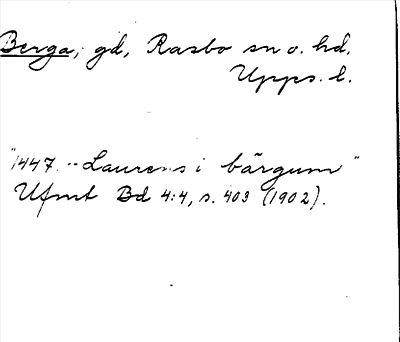 Berga, gd, Rasbo sn o. hd.
Upps. l.
"1447 -- Laurens i bärgum"
Ufmt Bd 4:4, s. 403 (1902).